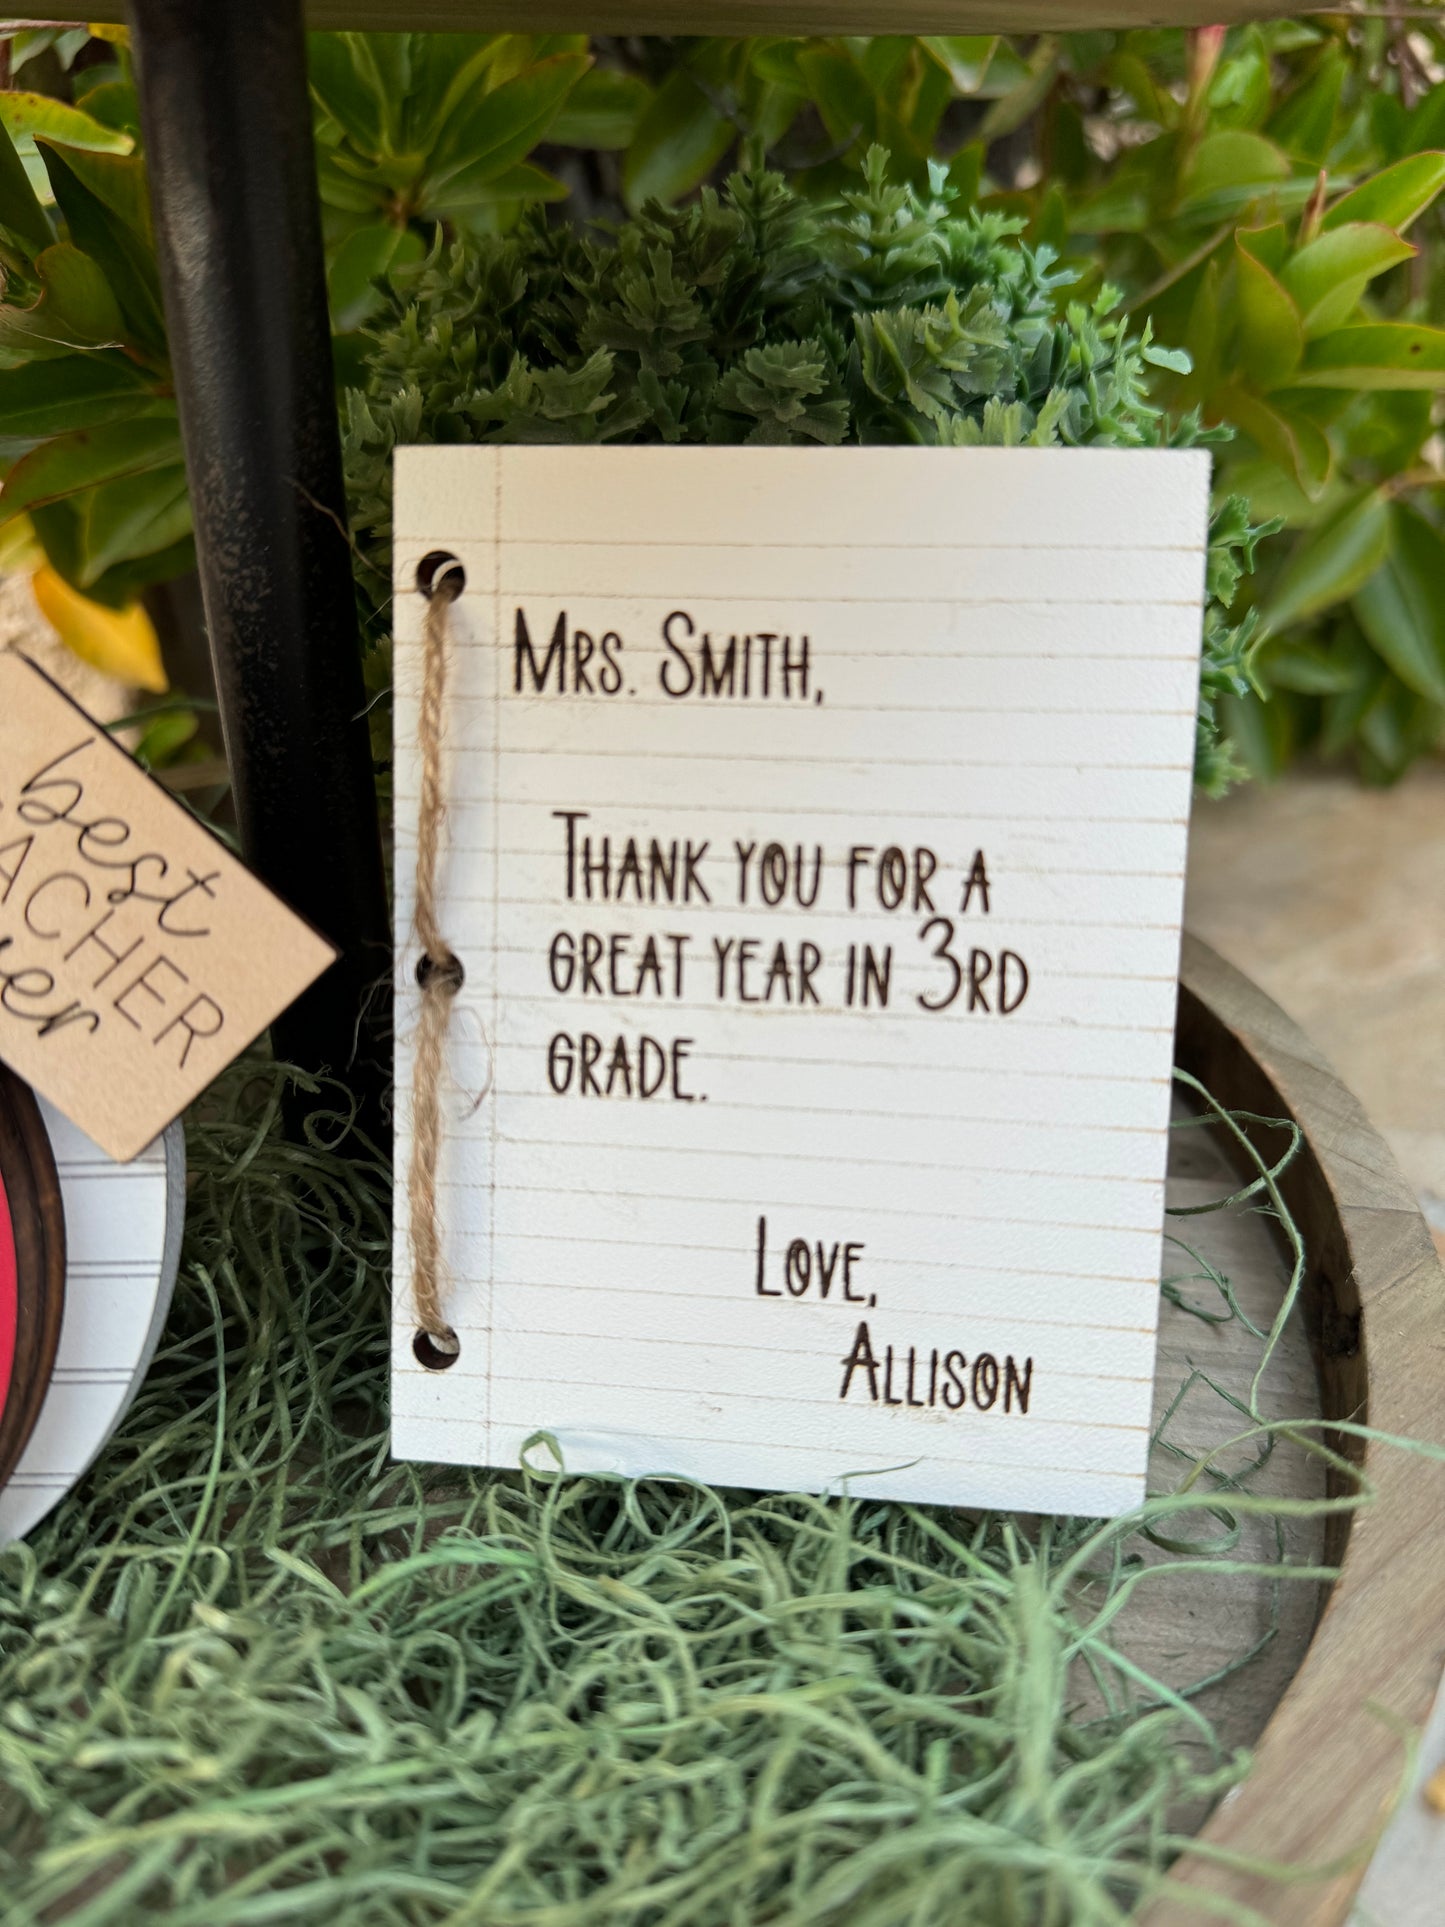 Mrs. Smith,
Thank you for a
great year in 3rd
grade.
Love,
Allison
best